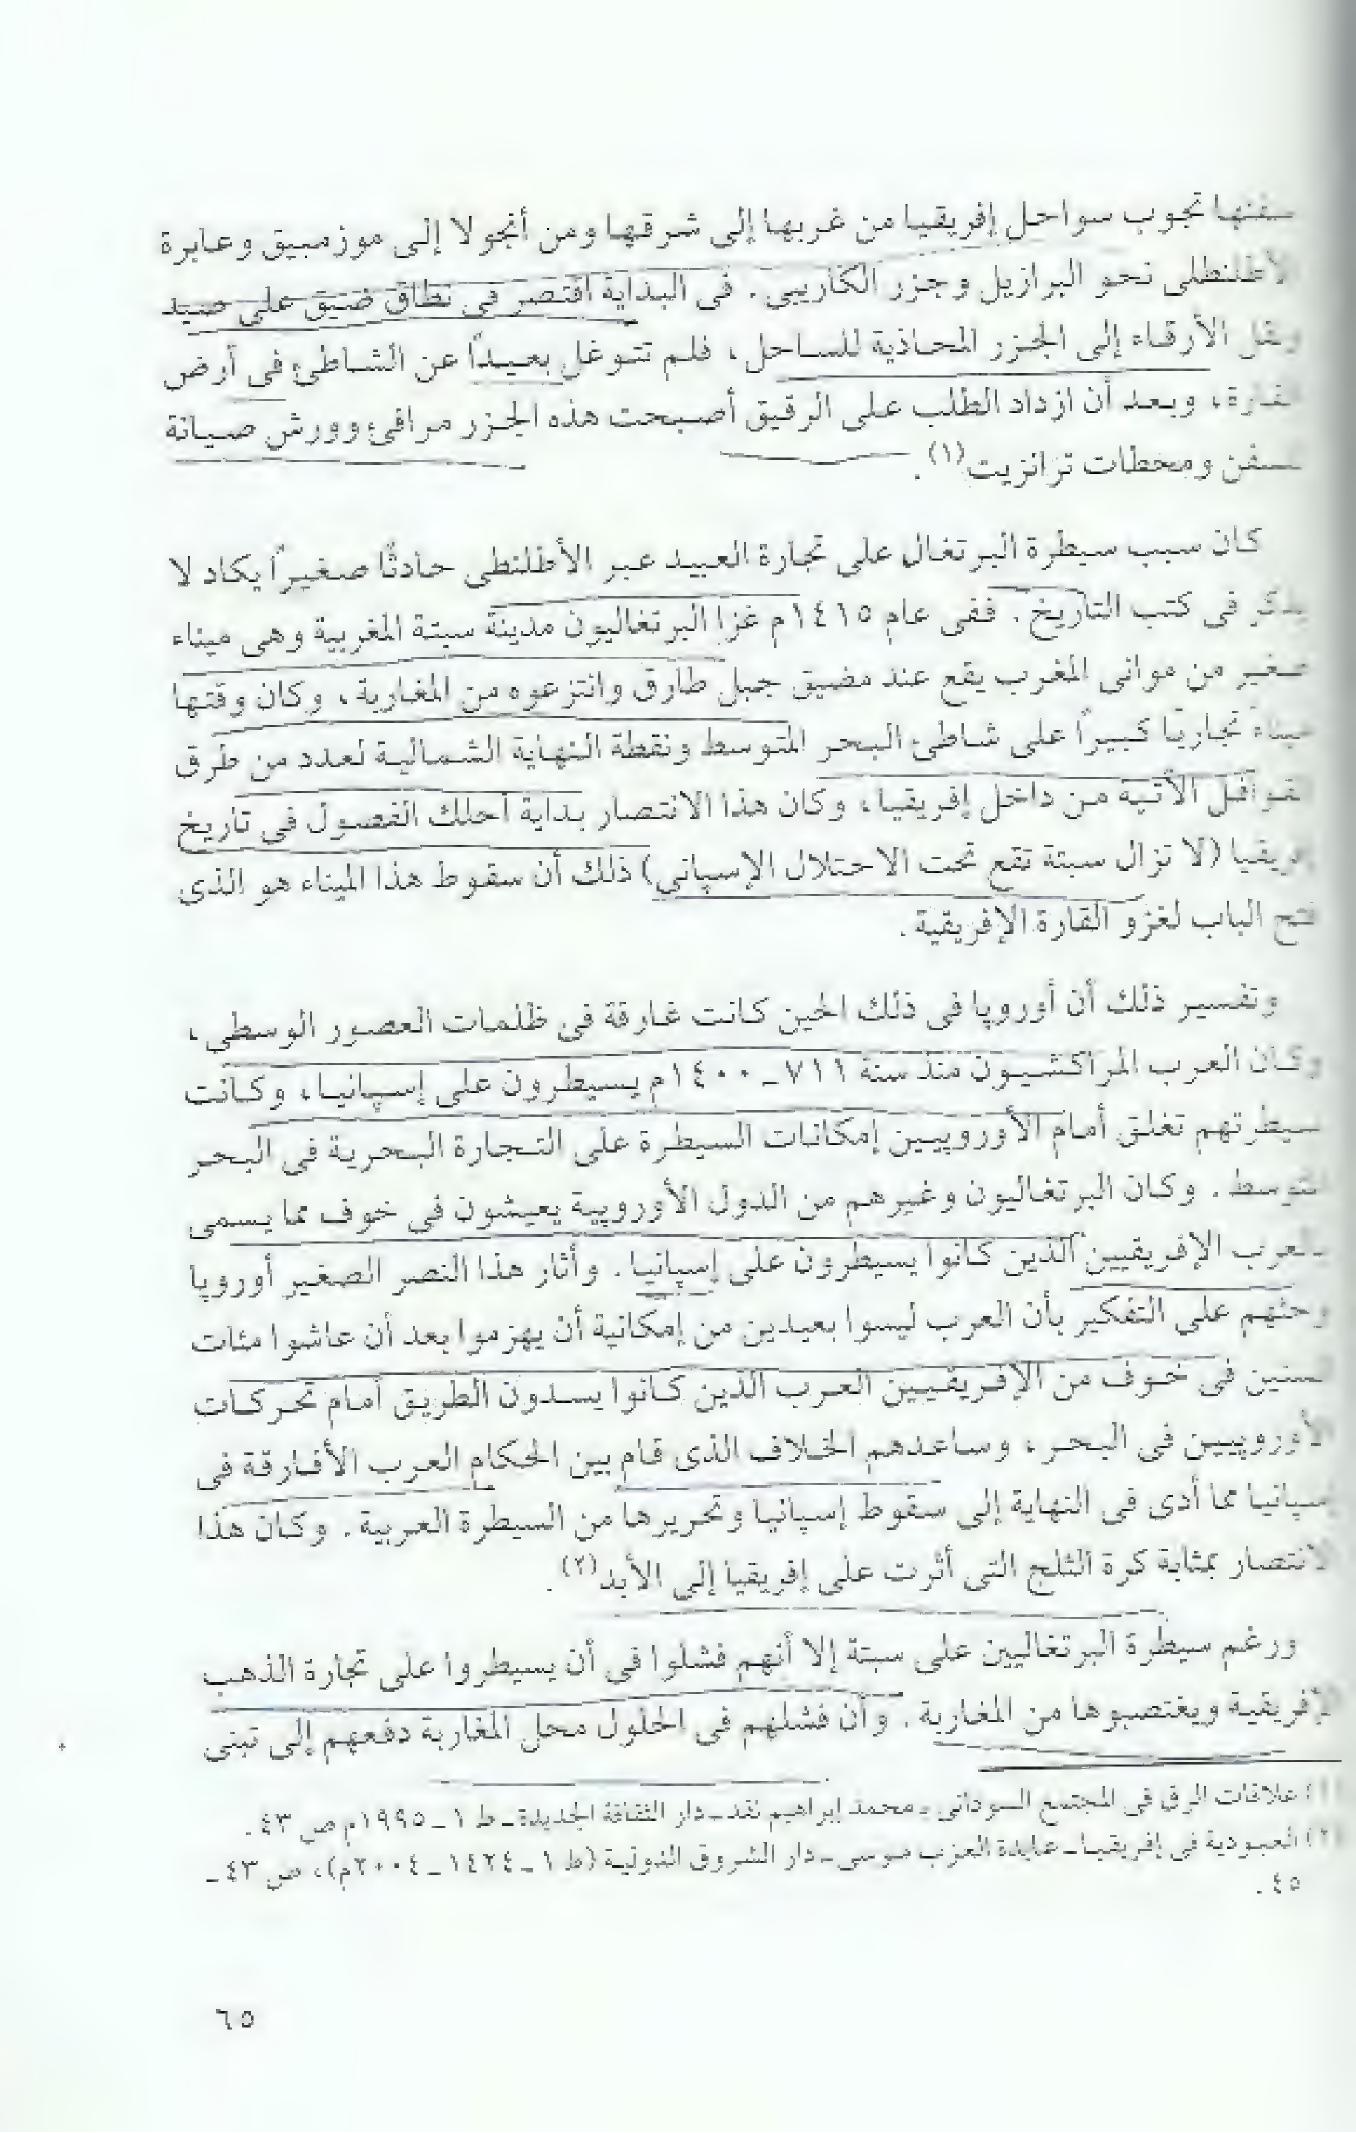 سفنها تجوب سواحل إفريقيا من غربها إلى شرقها ومن أنجولا إلى موزمبيق وعابرة
الأطلنطى نحو البرازيل وجزر الكاريبى. فى البداية اقتصر فى نطاق ضيق على صيد
ونقل الأرقاء إلى الجزر المحاذية للساحل، فلم تتوغل بعيداً عن الشاطئ فى أرض
القارة، وبعد أن ازداد الطلب على الرقيق أصبحت هذه الجزر مرافئ وورش صيانة
للسفن ومحطات ترانزيت(١).
كان سبب سيطرة البرتغال على تجارة العبيد عبر الأطلنطى حادثًا صغيراً يكاد لا
يذكر فى كتب التاريخ. ففى عام ١٤١٥م غزا البرتغاليون مدينة سبتة المغربية وهى ميناء
صغير من موانى المغرب يقع عند مضيق جبل طارق وانتزعوه من المغاربة، وكان وقتها
ميناءً تجاريًا كبيراً على شاطئ البحر المتوسط ونقطة النهاية الشمالية لعدد من طرق
القوافل الآتية من داخل إفريقيا، وكان هذا الانتصار بداية أحلك الفصول فى تاريخ
إفريقيا (لا تزال سبتة تقع تحت الاحتلال الإسپانى) ذلك أن سقوط هذا الميناء هو الذى
فتح الباب لغزو القارة الإفريقية.
وتفسير ذلك أن أوروپا فى ذلك الحين كانت غارقة فى ظلمات العصور الوسطى،
وكان العرب المراكشيون منذ سنة ٧١١ ـ ١٤٠٠م يسيطرون على إسپانيا، وكانت
سيطرتهم تغلق أمام الأوروپيين إمكانات السيطرة على التجارة البحرية فى البحر
المتوسط. وكان البرتغاليون وغيرهم من الدول الأوروپية يعيشون فى خوف مما يسمى
بالعرب الإفريقيين الذين كانوا يسيطرون على إسپانيا. وأثار هذا النصر الصغير أوروپا
وحثهم على التفكير بأن العرب ليسوا بعيدين من إمكانية أن يهزموا بعد أن عاشوا مئات
السنين فى خوف من الإفريقيين العرب الذين كانوا يسدون الطريق أمام تحركات
الأوروپيين فى البحر، وساعدهم الخلاف الذى قام بين الحكام العرب الأفارقة فى
إسپانيا مما أدى فى النهاية إلى سقوط إسپانيا وتحريرها من السيطرة العربية. وكان هذا
الانتصار بمثابة كرة الثلج التى أثرت على إفريقيا إلى الأبد(٢).
ورغم سيطرة البرتغاليين على سبتة إلا أنهم فشلوا فى أن يسيطروا على تجارة الذهب
الإفريقية ويغتصبوها من المغاربة. وأن فشلهم فى الحلول محل المغاربة دفعهم إلى تبنى
(١) علاقات الرق فى المجتمع السودانى ـ محمد إبراهيم نقد ـ دار الثقافة الجديدة ـ ط ١ ـ ١٩٩٥م ص ٤٣.
(٢) العبودية فى إفريقيا ـ عايدة العزب موسى ـ دار الشروق الدولية (ط ١ ـ ١٤٢٤ ـ ٢٠٠٤م)، ص ٤٣ ـ
٤٥.
٦٥